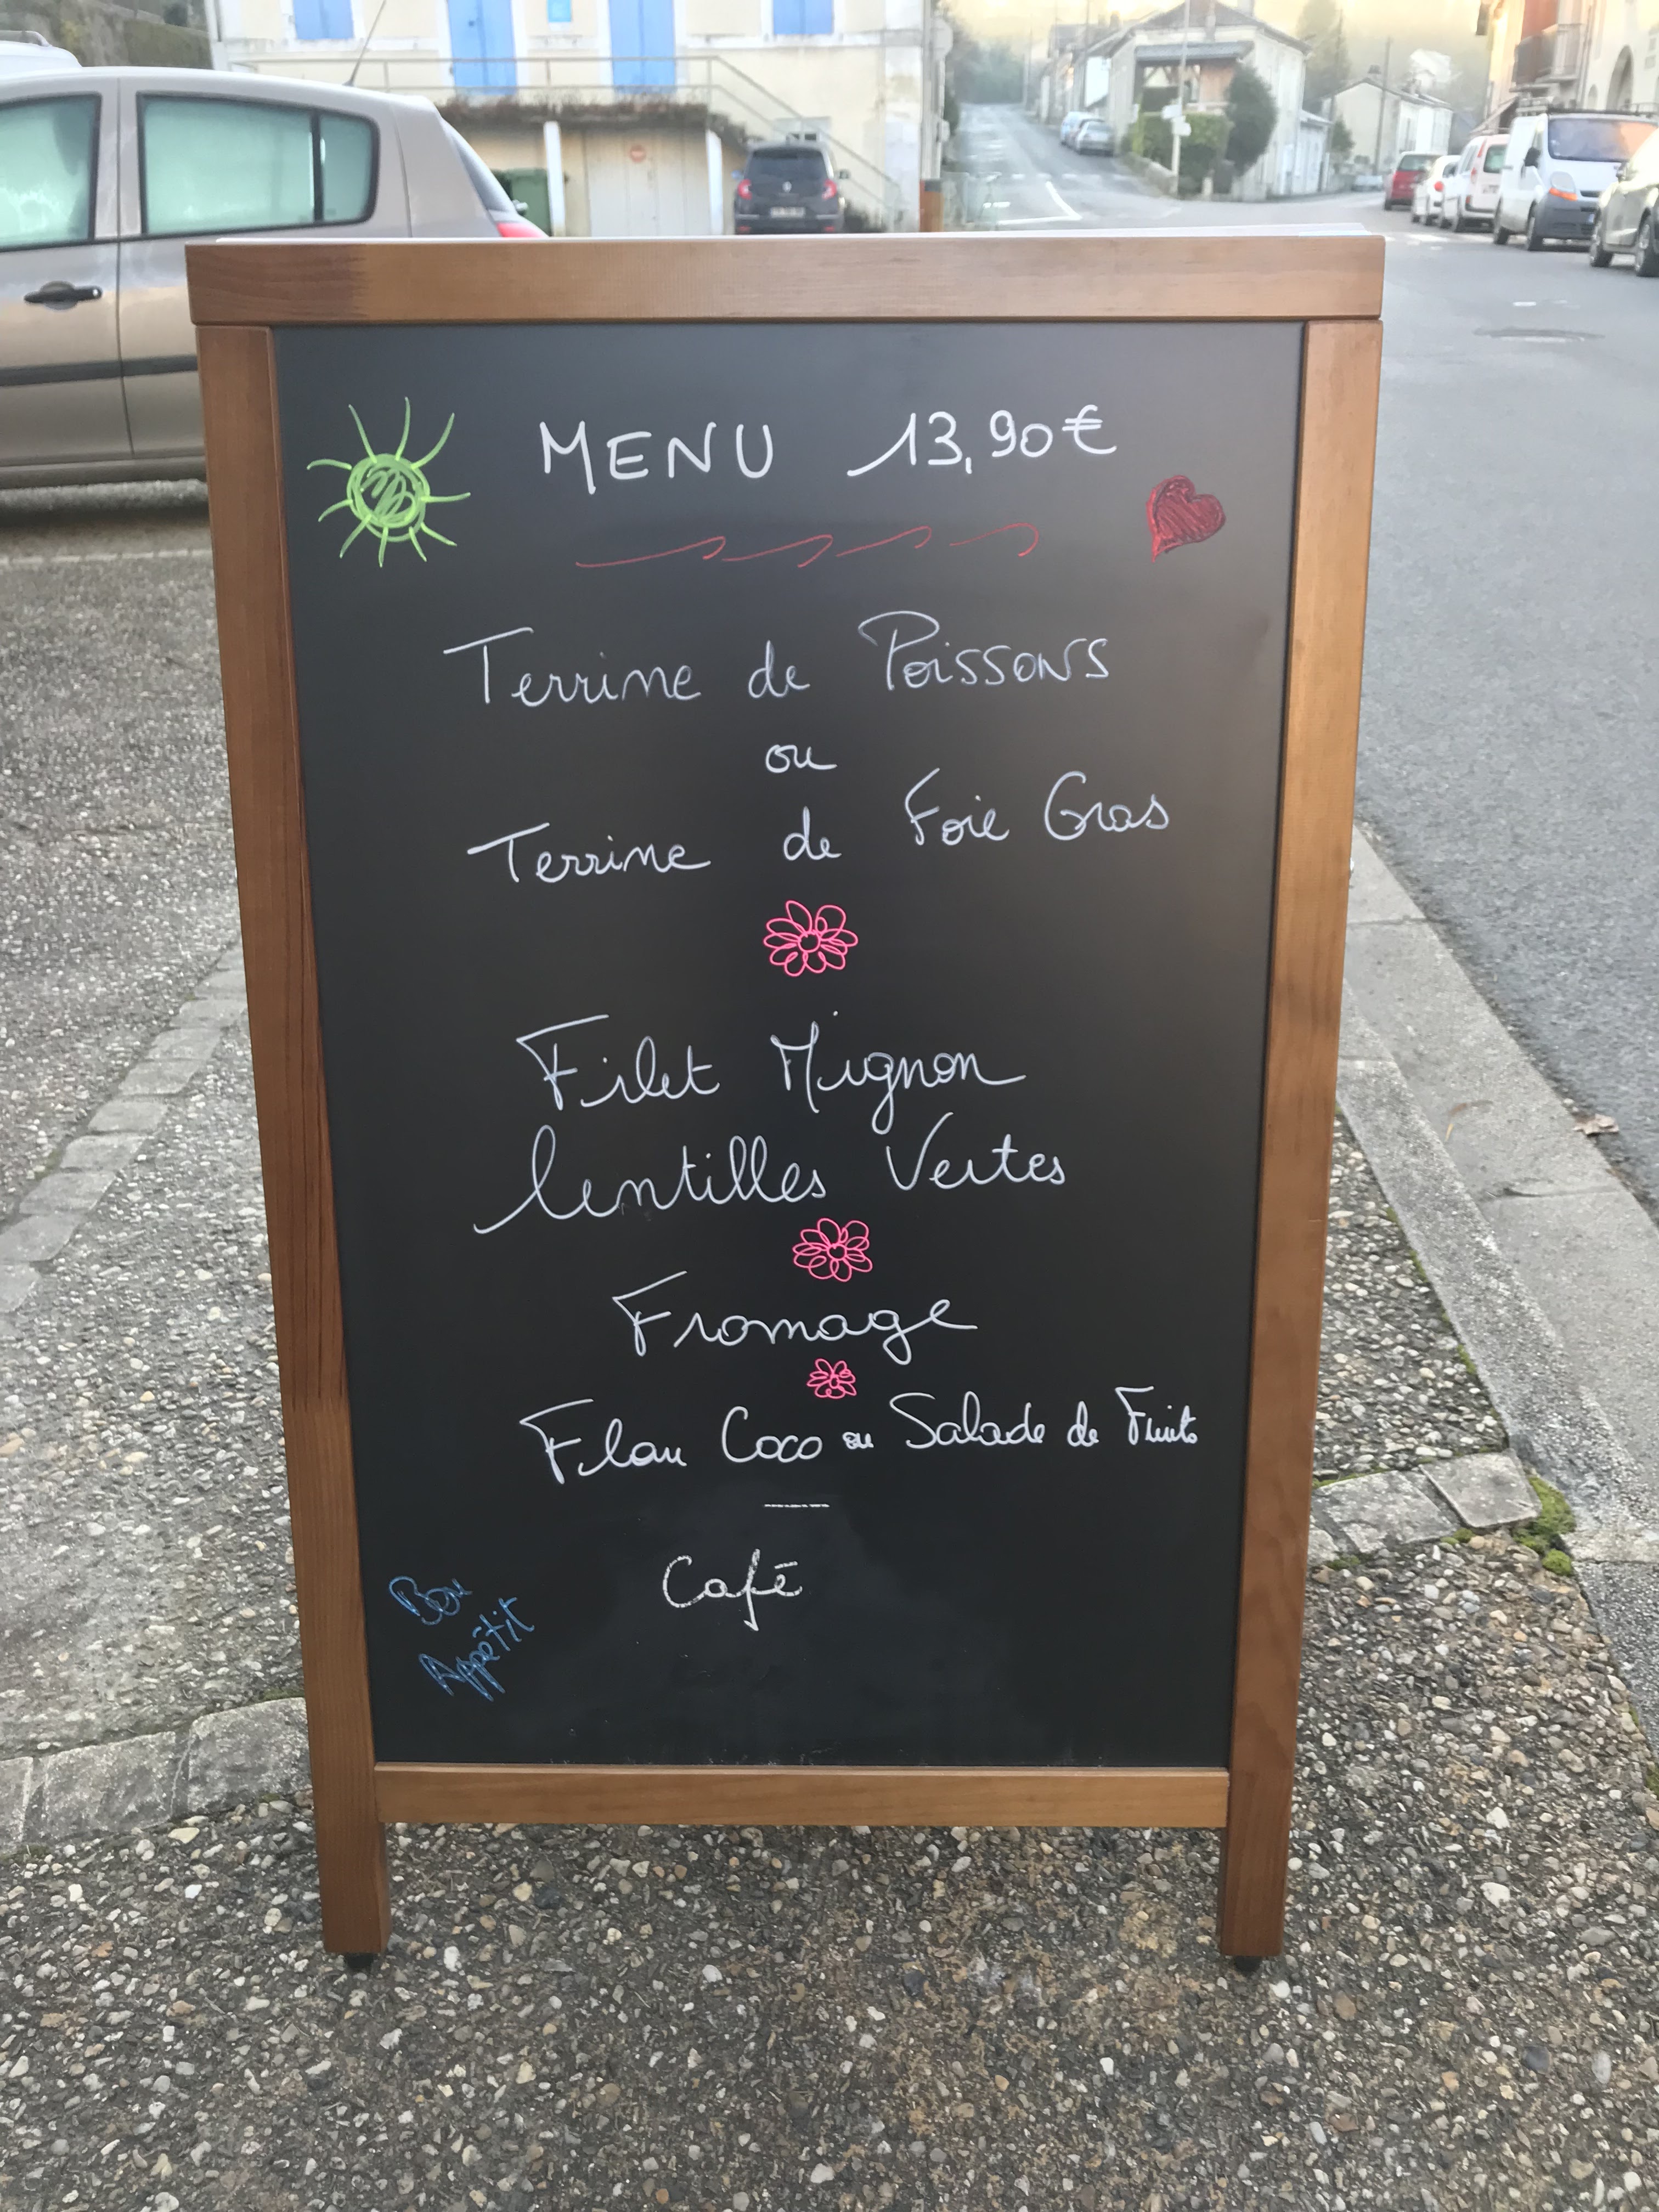 MENU 13,90€
Terrine de Poissons
ou
Terrine de Foie Gras
Filet Mignon
lentilles Vertes
Fromage
Flan Coco ou Salade de Fruits
Café
Bon
Appêtit